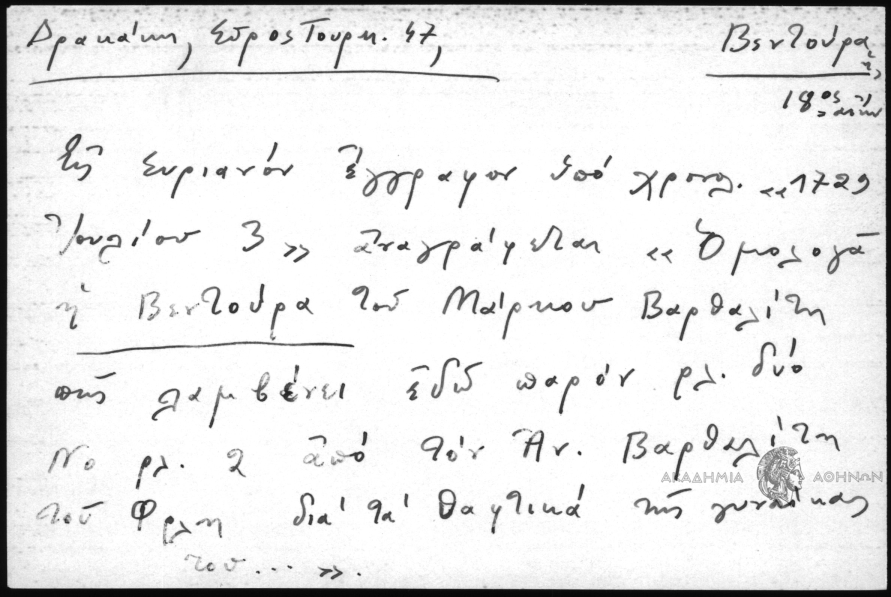 Δρακάκη, Σῦρος Τουρκ. 47,
Βεντούρα,
18ος αἰών
Εἰς Συριανόν ἔγγραφον ὑπό χρονολ. «1729
Ἰουλίου 3» ἀναγράφεται «Ὁμολογᾶ
ἡ Βεντούρα τοῦ Μάρκου Βαρθαλίτη
πῶς λαμβένει ἐδῶ παρόν ρλ. δύο
Νο ρλ. 2 ἀπό τόν Ἀν. Βαρθαλίτη
τοῦ Φρλη διά τά θαφτικά τῆς γυναίκας
του...».
ΑΚΑΔΗΜΙΑ ΑΘΗΝΩΝ